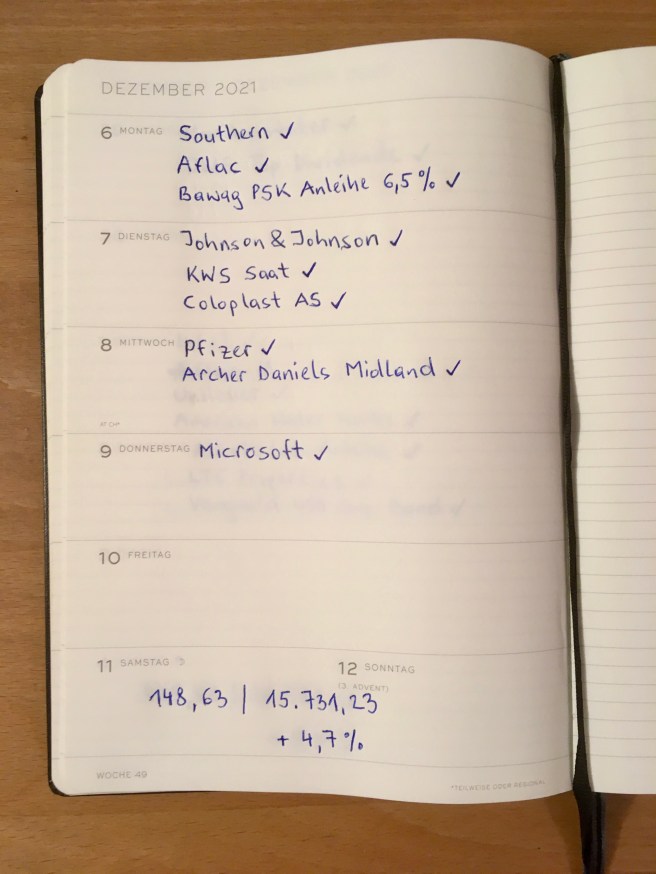 DEZEMBER 2021
6 MONTAG Southern ✓
Aflac ✓
Bawag PSK Anleihe 6,5% ✓
7 DIENSTAG Johnson & Johnson ✓
KWS Saat ✓
Coloplast AS ✓
8 MITTWOCH Pfizer ✓
Archer Daniels Midland ✓
9 DONNERSTAG Microsoft ✓
10 FREITAG
11 SAMSTAG
12 SONNTAG
(3. ADVENT)
148,63 | 15.731,23
+ 4,7%
WOCHE 49
*TEILWEISE ODER REGIONAL